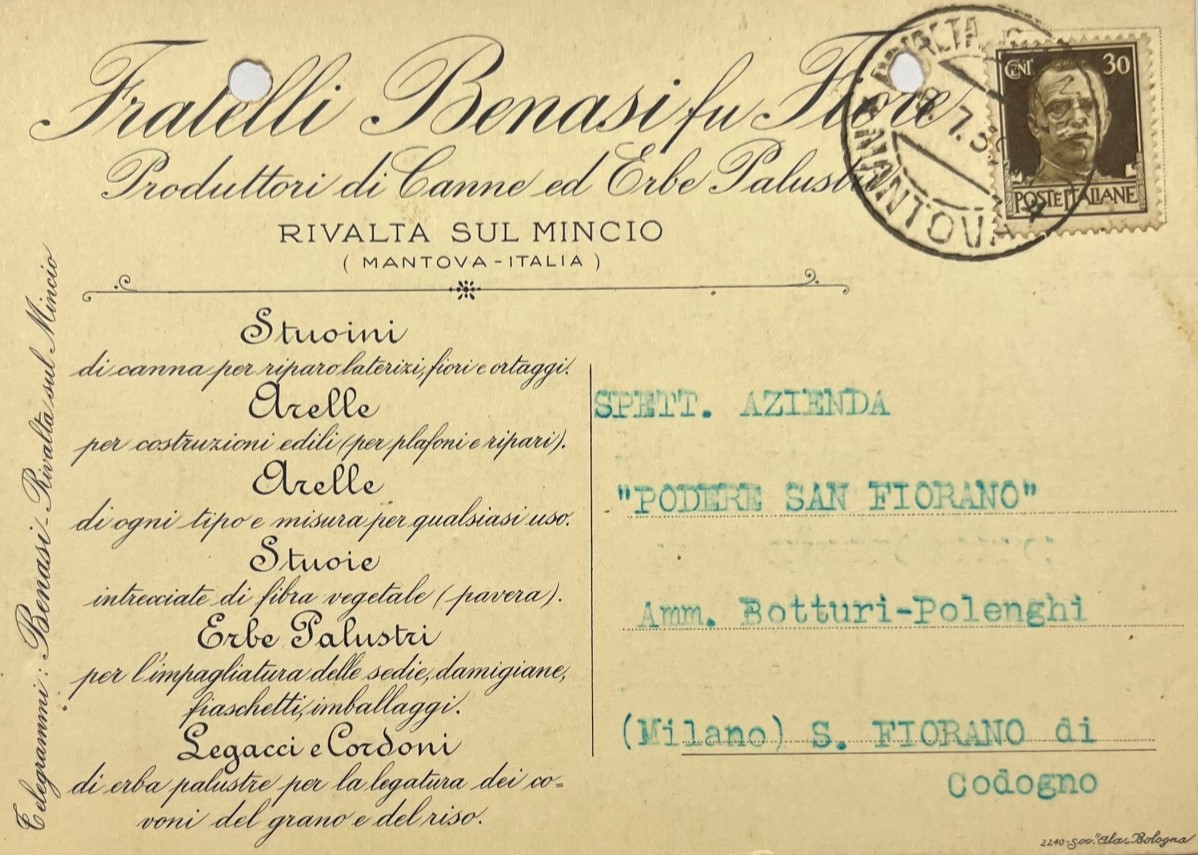 Fratelli Benasi fu Fiore
Produttori di Canne ed Erbe Palustri
RIVALTA SUL MINCIO
( MANTOVA - ITALIA )
CENT 30
POSTE ITALIANE
RIVALTA
MANTOVA
Telegrammi: Benasi - Rivalta sul Mincio
Stuoini
di canna per riparo laterizi, fiori e ortaggi.
Arelle
per costruzioni edili (per plafoni e ripari).
Arelle
di ogni tipo e misura per qualsiasi uso.
Stuoie
intrecciate di fibra vegetale (pavera).
Erbe Palustri
per l'impagliatura delle sedie, damigiane,
fiaschetti, imballaggi.
Legacci e Cordoni
di erba palustre per la legatura dei co=
voni del grano e del riso.
SPETT. AZIENDA
"PODERE SAN FIORANO"
Amm. Botturi-Polenghi
(Milano) S. FIORANO di
Codogno
Bologna